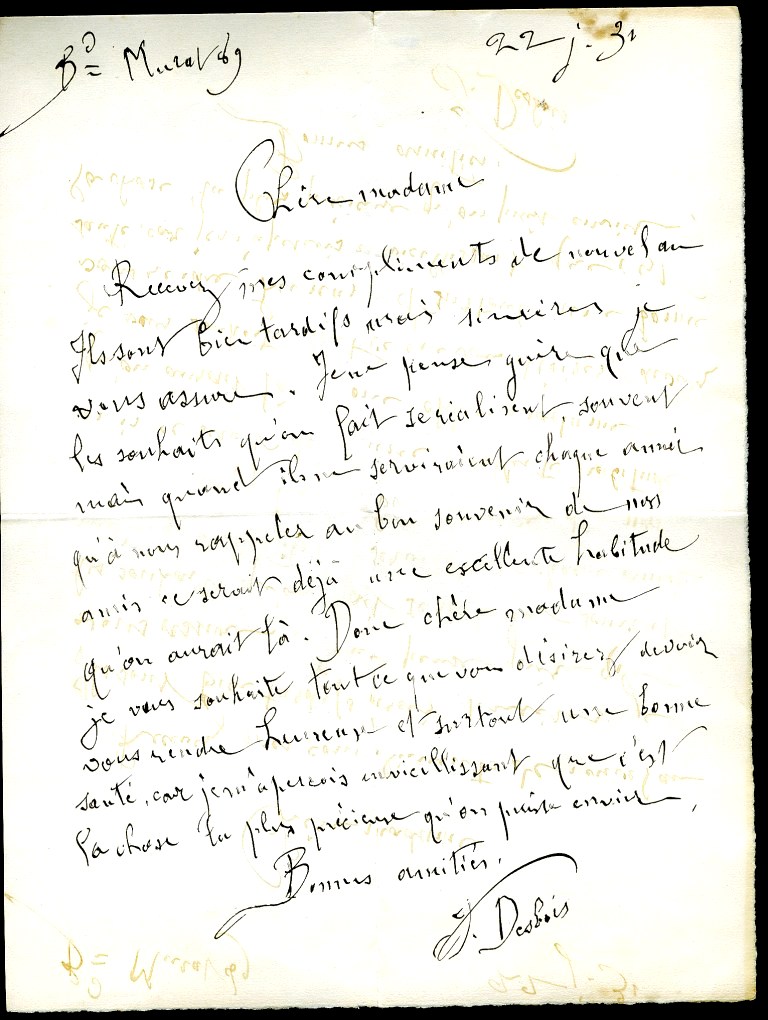 Bd Murat 89 22 j. 31
Chère madame
Recevez mes compliments de nouvel an
Ils sont bien tardifs mais sincères je
vous assure. Je ne pense guère que
les souhaits qu'on fait se réalisent souvent
mais quand ils ne serviraient chaque année
qu'à nous rappeler au bon souvenir de nos
amis ce serait déjà une excellente habitude
qu'on aurait là. Donc chère madame
je vous souhaite tout ce que vous désirez devoir
vous rendre heureuse et surtout une bonne
santé, car je m'aperçois en vieillissant que c'est
la chose la plus précieuse qu'on puisse envier.
Bonnes amitiés.
Desbois